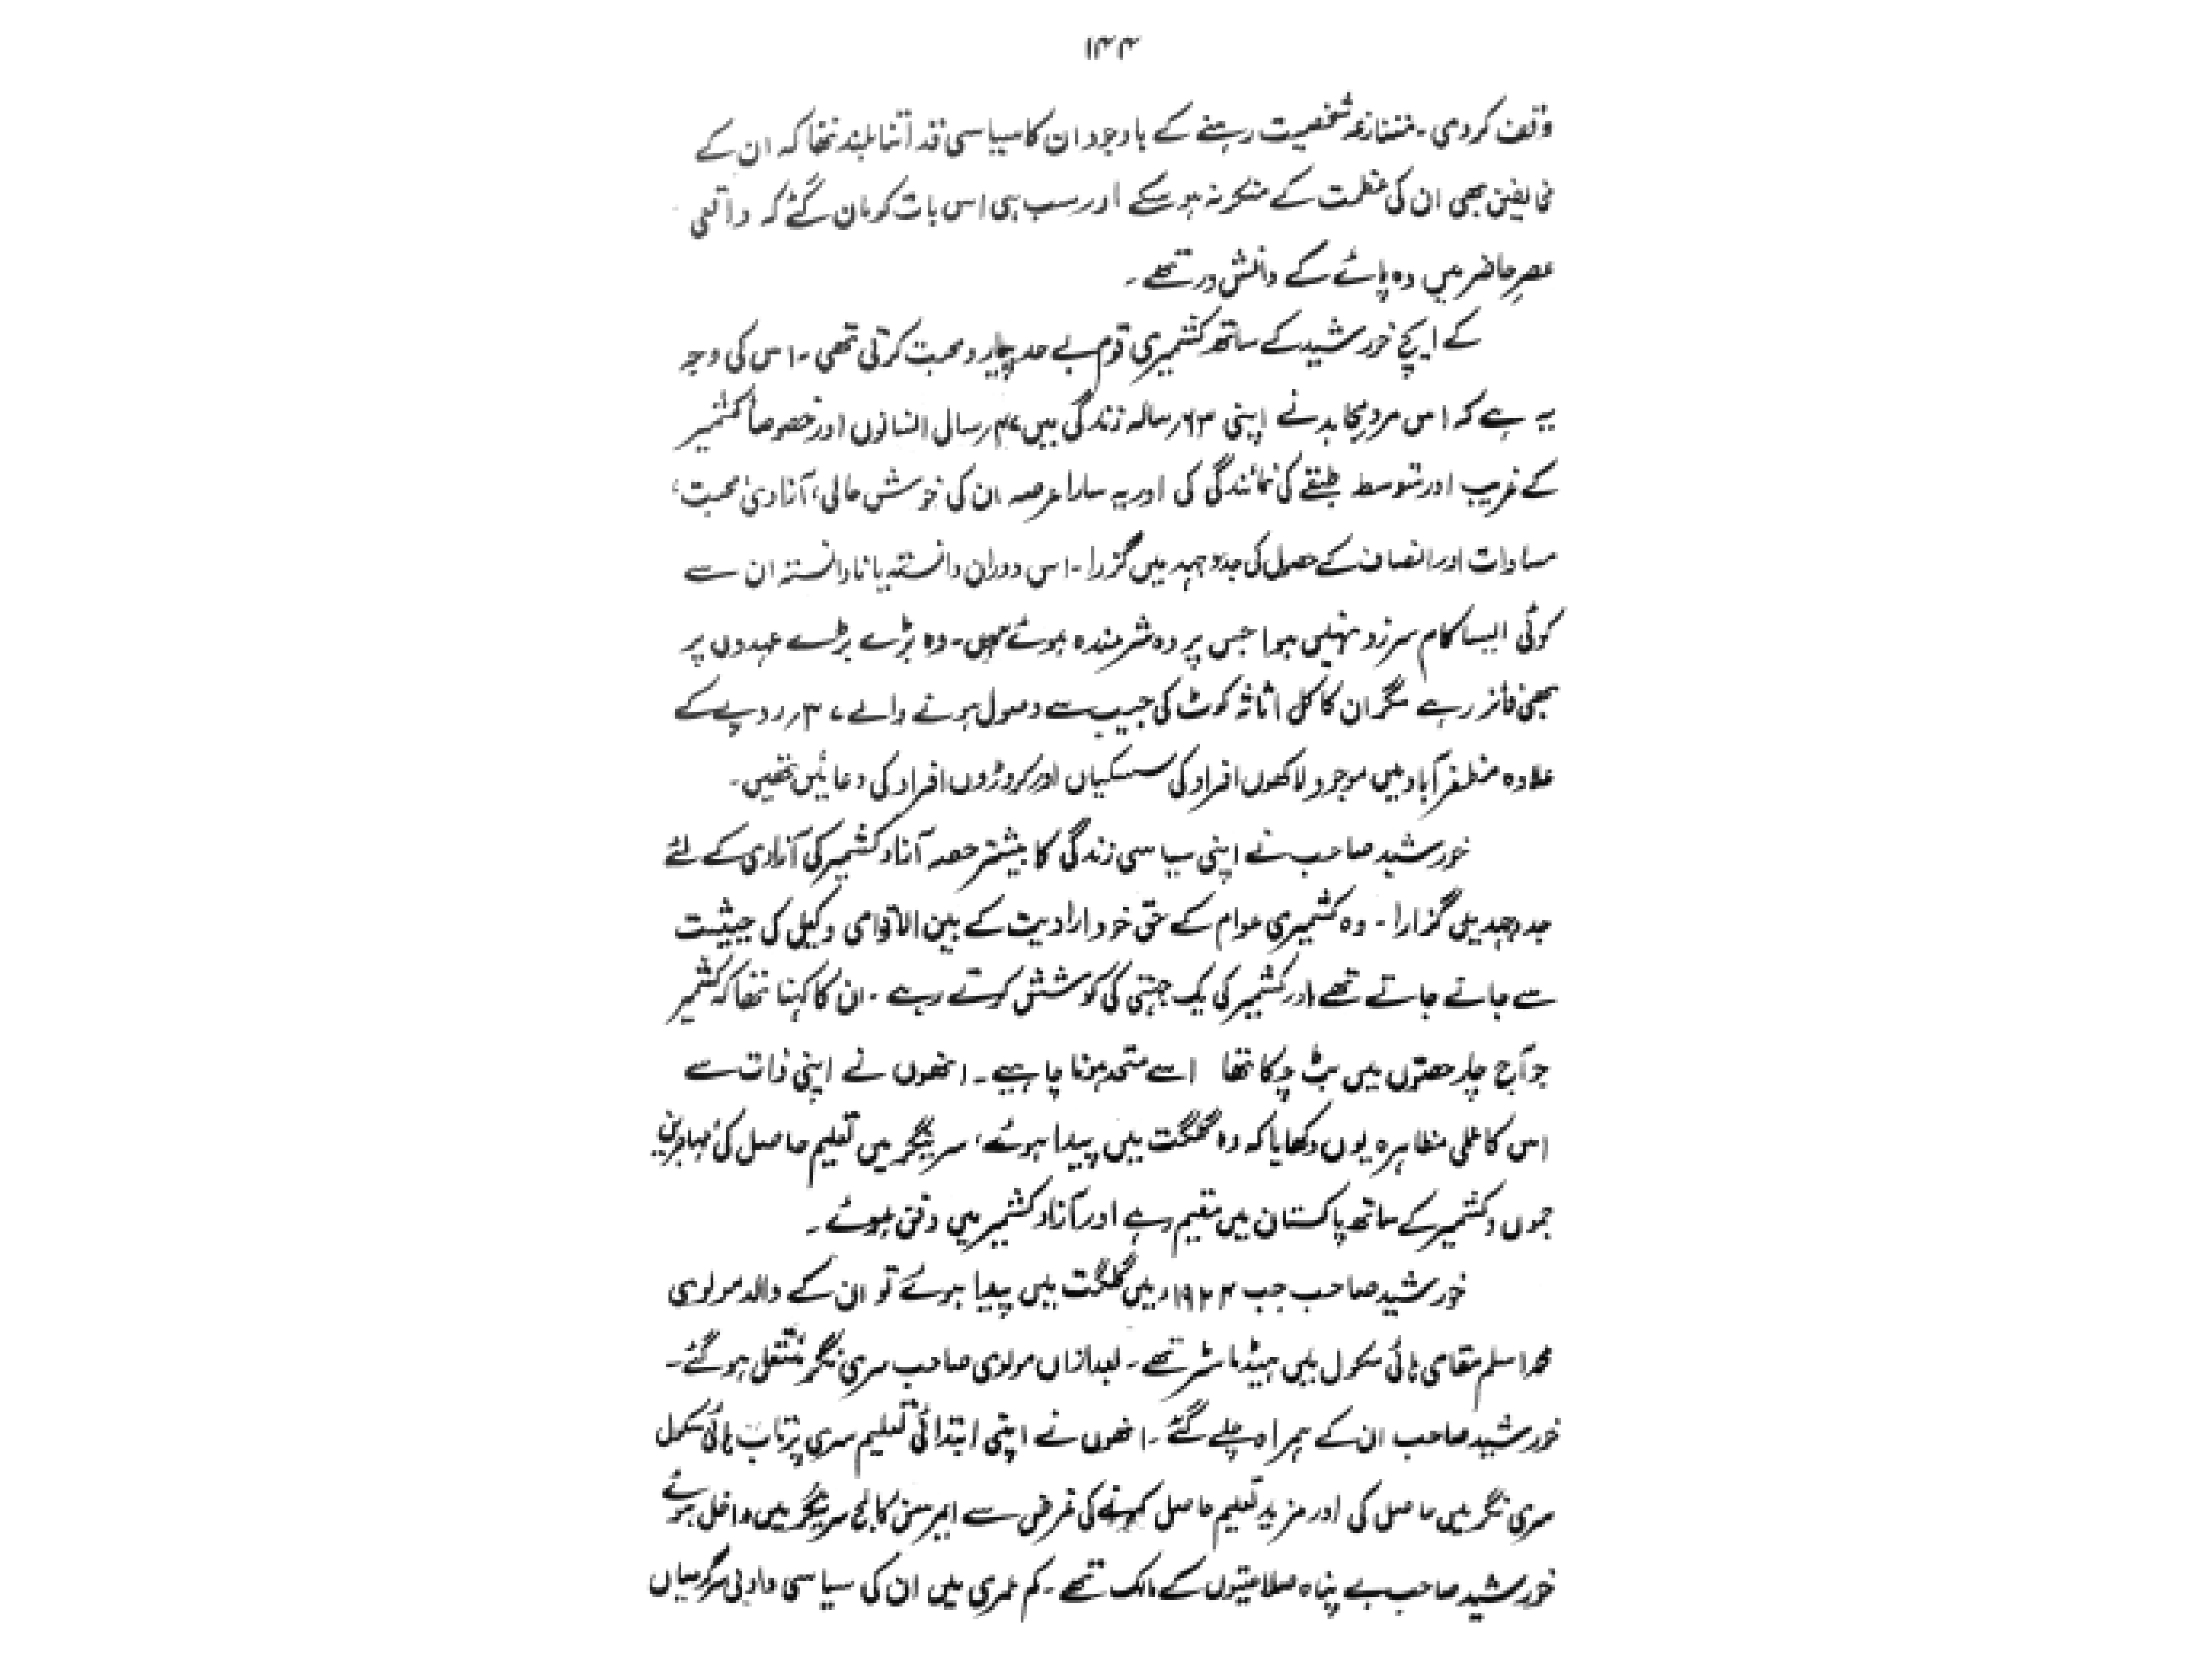 ۱۴۴
وقف کردی ۔ متنازعہ شخصیت رہنے کے باوجود ان کا سیاسی قد اتنا بلند تھا کہ ان کے
مخالفین بھی ان کی عظمت کے منکر نہ ہو سکے اور سب ہی اس بات کو مان گئے کہ واقعی
عصرِ حاضر میں وہ پائے کے دانش ور تھے ۔
کے ایچ خورشید کے ساتھ کشمیری قوم بے حد پیار و محبت کرتی تھی ۔ اس کی وجہ
یہ ہے کہ اس مردِ مجاہد نے اپنی ۶۳ سالہ زندگی میں سال انسانوں اور خصوصاً کشمیر
کے غریب اور متوسط طبقے کی نمائندگی کی اور یہ سارا عرصہ ان کی خوش حالی، آزادی، محبت،
مساوات اور انصاف کے حصول کی جدوجہد میں گزرا ۔ اس دوران دانستہ یا نادانستہ ان سے
کوئی ایسا کام سرزد نہیں ہوا جس پر وہ شرمندہ ہوئے ہوں ۔ وہ بڑے بڑے عہدوں پر
بھی فائز رہے مگر ان کا کل اثاثہ کوٹ کی جیب سے وصول ہونے والے ۳۷ روپے کے
علاوہ مظفر آباد میں موجود لاکھوں افراد کی سسکیاں اور کروڑوں افراد کی دعائیں تھیں ۔
خورشید صاحب نے اپنی سیاسی زندگی کا بیشتر حصہ آزاد کشمیر کی آزادی کے لئے
جدوجہد میں گزارا ۔ وہ کشمیری عوام کے حق خود ارادیت کے بین الاقوامی وکیل کی حیثیت
سے جانے جاتے تھے اور کشمیر کی یک جہتی کی کوشش کرتے رہے ۔ ان کا کہنا تھا کہ کشمیر
جو آج چار حصّوں میں بٹ چکا تھا اسے متحد ہونا چاہیے ۔ انھوں نے اپنی ذات سے
اس کا عملی مظاہرہ یوں دکھایا کہ وہ گلگت میں پیدا ہوئے، سرینگر میں تعلیم حاصل کی، مہاجرین
جموں و کشمیر کے ساتھ پاکستان میں مقیم رہے اور آزاد کشمیر میں دفن ہوئے ۔
خورشید صاحب جب ۱۹۲۴ء میں گلگت میں پیدا ہوئے تو ان کے والد مولوی
محمد اسلم مقامی ہائی سکول میں ہیڈ ماسٹر تھے ۔ بعد ازاں مولوی صاحب سری نگر منتقل ہو گئے ۔
خورشید صاحب ان کے ہمراہ چلے گئے ۔ انھوں نے اپنی ابتدائی تعلیم سری پرتاب ہائی سکول
سری نگر میں حاصل کی اور مزید تعلیم حاصل کرنے کی غرض سے امر سنگھ کالج سرینگر میں داخل ہوئے
خورشید صاحب بے پناہ صلاحیتوں کے مالک تھے ۔ کم عمری میں ان کی سیاسی و ادبی سرگرمیاں